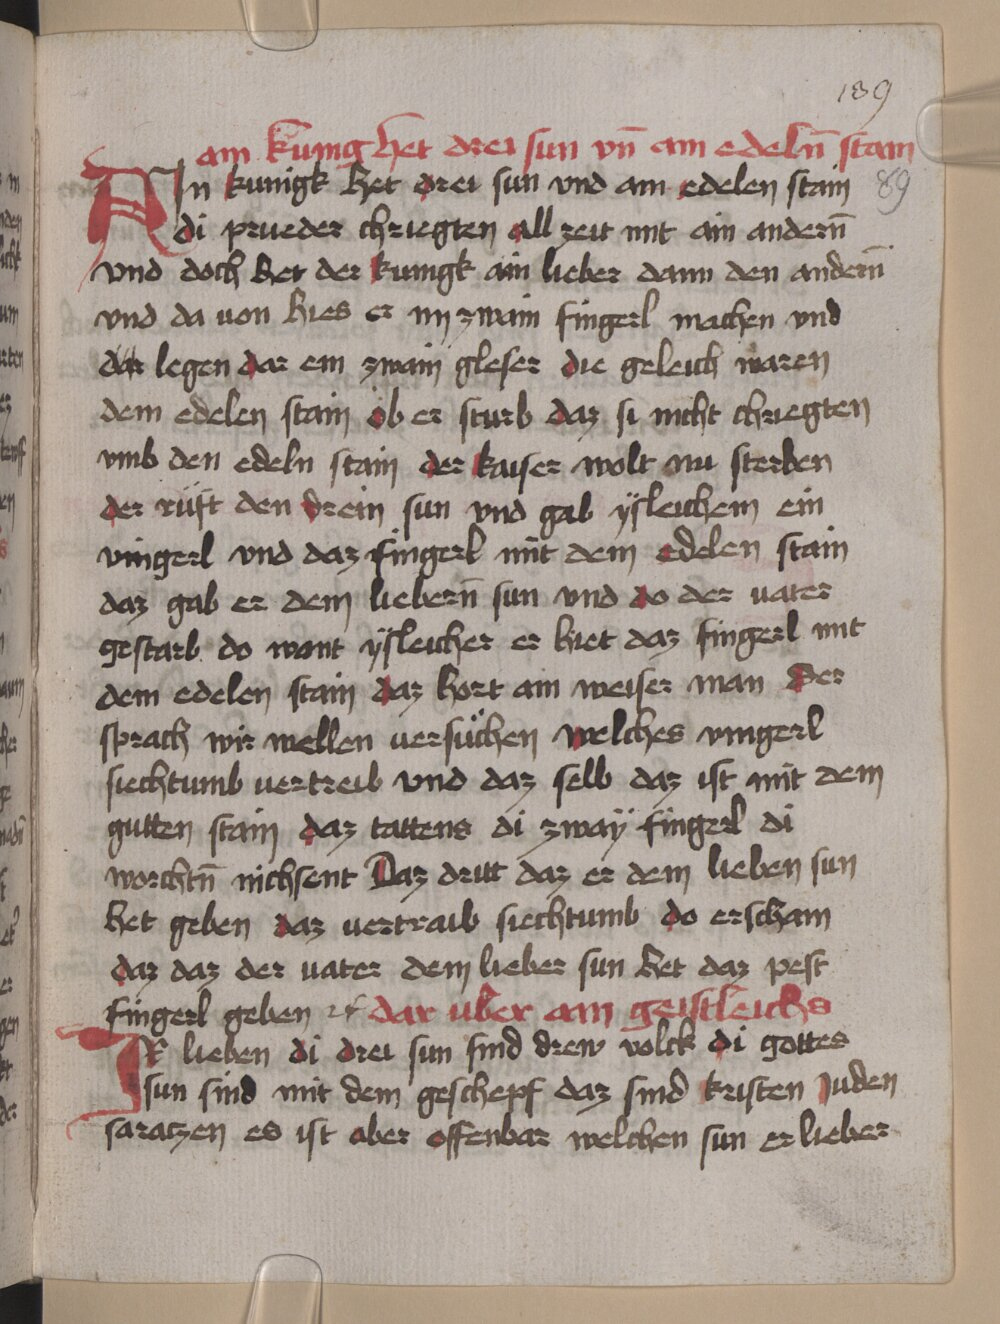 189
ain kunig het drei sun vn̄ ain edeln̄ stain
AIn kunigk het drei sun vnd ain edelen stain
89
di prueder chriegten all zeit mit ain andern̄
vnd doch het der kunigk ain lieber dann den andern̄
vnd da von hies er im zwain fingerl machen vnd
dar legen dar ein zwain gleser die geleich waren
dem edelen stain ob er sturb daz si nicht chriegten
vmb den edeln stain der kaiser wolt nu sterben
der rüft den drein sun vnd gab ÿsleichem ein
vingerl vnd daz fingerl mit dem edelen stain
daz gab er dem liebern̄ sun vnd do der vater
gestarb do want ÿsleicher er hiet daz fingerl mit
dem edelen stain daz hort ain weiser man der
sprach wir wellen versüchen welches vingerl
siechtumb vertreib vnd daz selb daz ist mit dem
gutten stain daz tattens di zwaÿ fingerl di
worchtn̄ nichsent Daz dritt daz er dem lieben sun
het geben daz vertraib siechtumb do erscham
daz daz der vater dem lieber sun het daz pest
fingerl geben dar uber ain geistleichs
IR lieben di drei sun sind drew volck di gottes
sun sind mit dem geschepf daz sind kristen Juden
saraczen es ist aber offenbar welchen sun er lieber